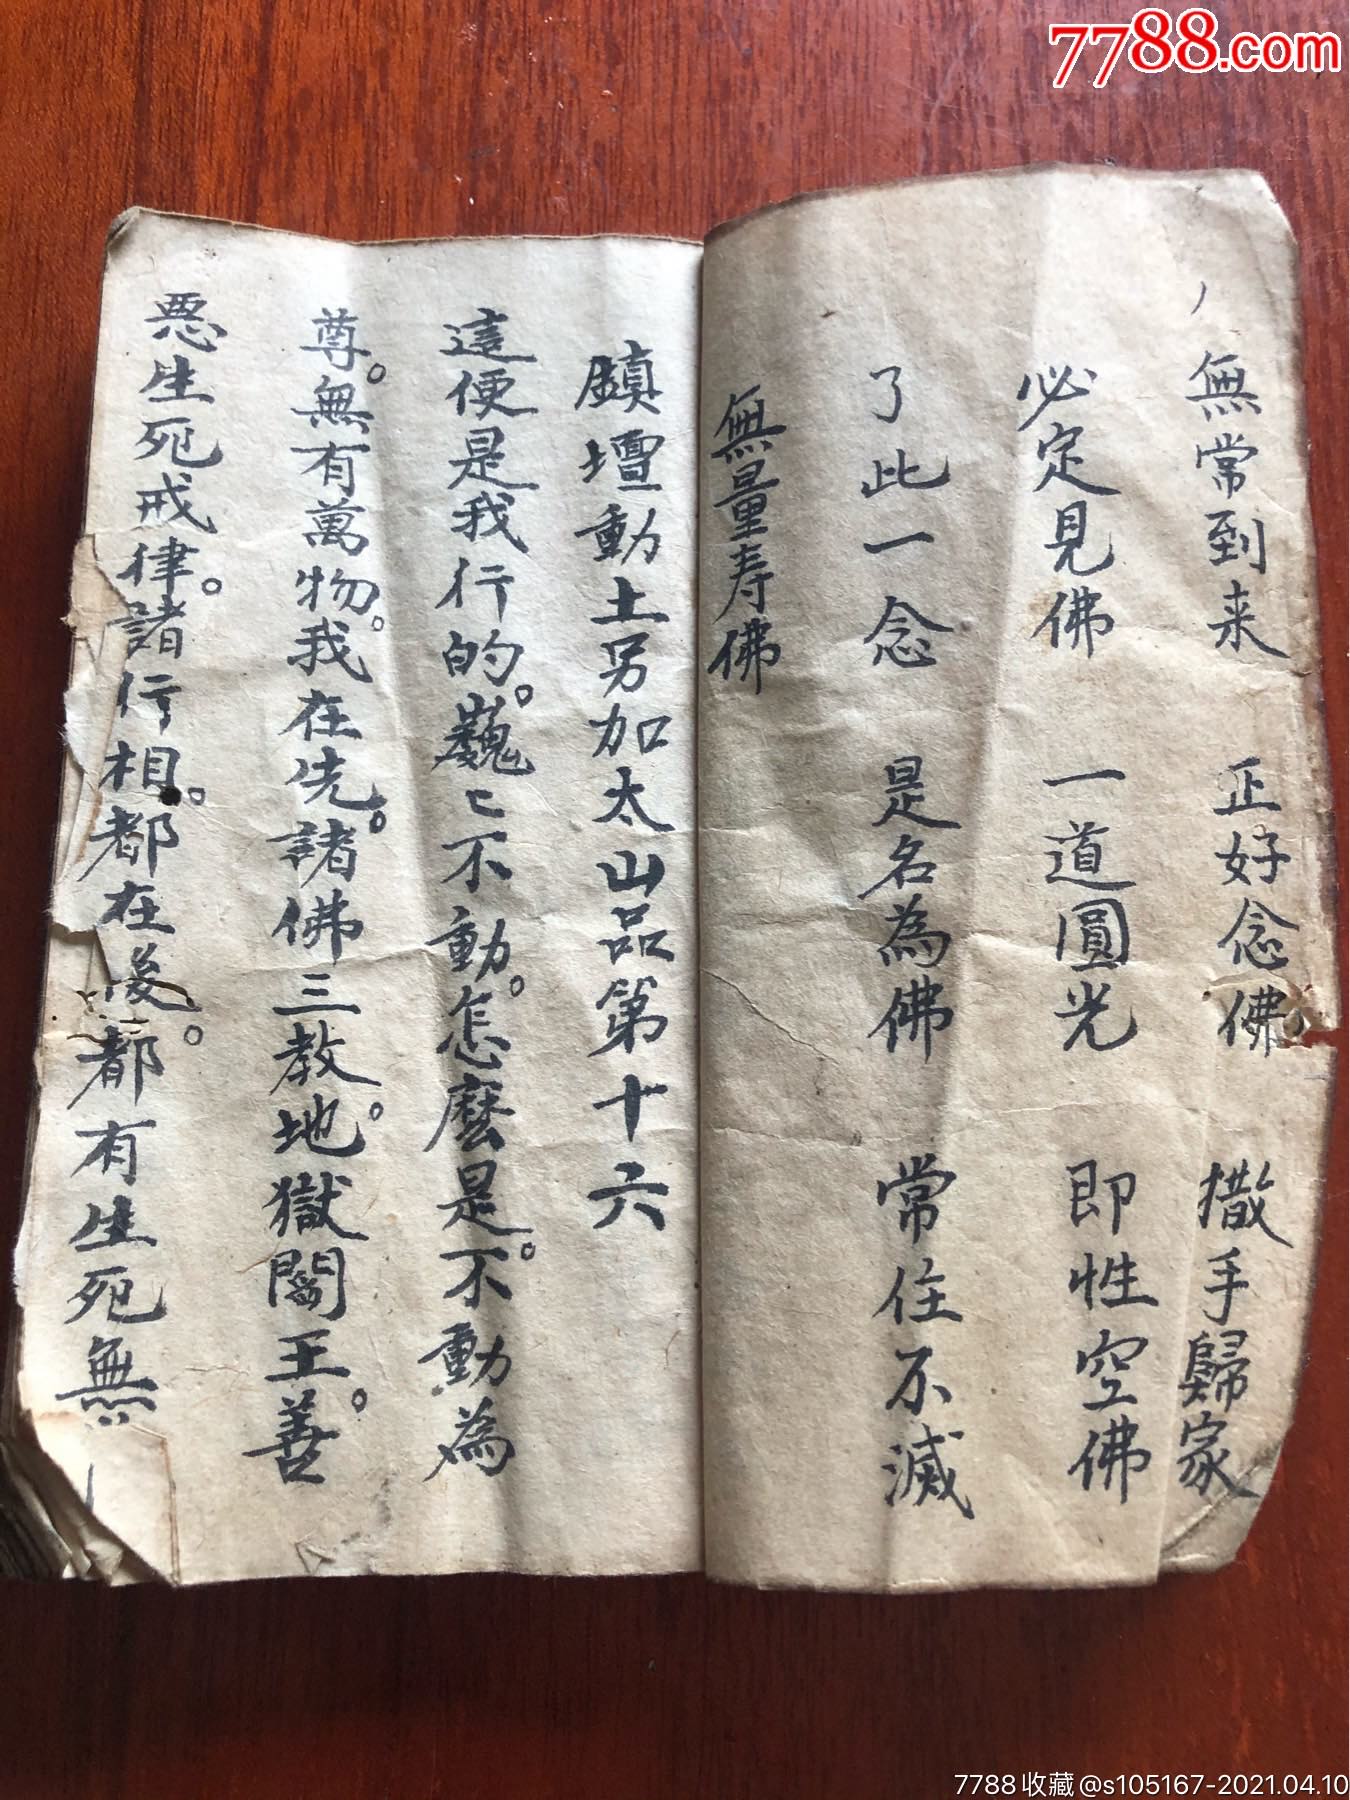 7788.com
無常到来 正好念佛 撒手歸家
必定見佛 一道圓光 即性空佛
了此一念 是名為佛 常住不滅
無量寿佛
鎮壇動土另加太山品第十六
這便是我行的。巍〻不動。怎麽是。不動為
尊。無有萬物。我在先。諸佛三教。地獄閻王。善
悪生死戒律。諸行相。都在後。都有生死無
7788收藏@s105167-2021.04.10